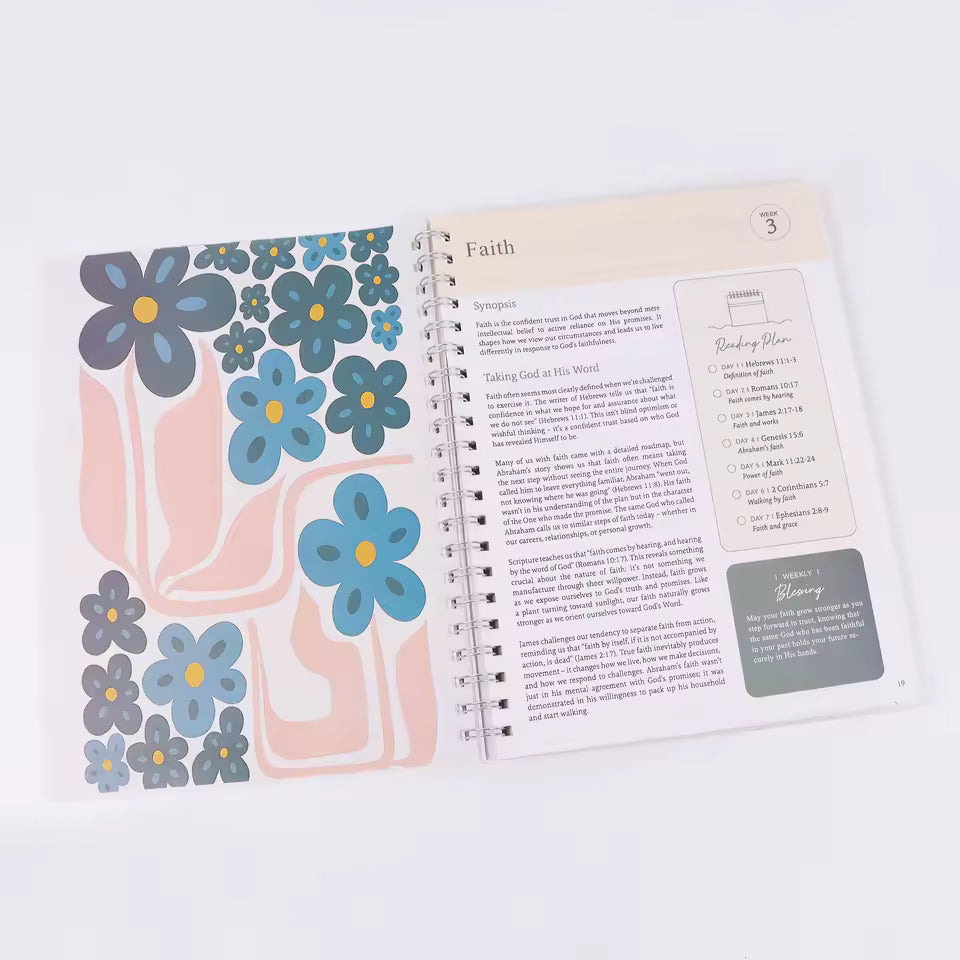 Faith
WEEK
3
Synopsis
Faith is the confident trust in God that moves beyond mere
intellectual belief to active reliance on His promises. It
shapes how we view our circumstances and leads us to live
differently in response to God's faithfulness.
Taking God at His Word
Faith often seems most clearly defined when we're challenged
to exercise it. The writer of Hebrews tells us that "faith is
confidence in what we hope for and assurance about what
we do not see" (Hebrews 11:1). This isn't blind optimism or
wishful thinking – it's a confident trust based on who God
has revealed Himself to be.
Many of us wish faith came with a detailed roadmap, but
Abraham's story shows us that faith often means taking
the next step without seeing the entire journey. When God
called him to leave everything familiar, Abraham "went out,
not knowing where he was going" (Hebrews 11:8). His faith
wasn't in his understanding of the plan but in the character
of the One who made the promise. The same God who called
Abraham calls us to similar steps of faith today – whether in
our careers, relationships, or personal growth.
Scripture teaches us that "faith comes by hearing, and hearing
by the word of God" (Romans 10:17). This reveals something
crucial about the nature of faith: it's not something we
manufacture through sheer willpower. Instead, faith grows
as we expose ourselves to God's truth and promises. Like
a plant turning toward sunlight, our faith naturally grows
stronger as we orient ourselves toward God's Word.
James challenges our tendency to separate faith from action,
reminding us that "faith by itself, if it is not accompanied by
action, is dead" (James 2:17). True faith inevitably produces
movement – it changes how we live, how we make decisions,
and how we respond to challenges. Abraham's faith wasn't
just in his mental agreement with God's promises; it was
demonstrated in his willingness to pack up his household
and start walking.
Reading Plan
DAY 1 | Hebrews 11:1-3
Definition of faith
DAY 2 | Romans 10:17
Faith comes by hearing
DAY 3 | James 2:17-18
Faith and works
DAY 4 | Genesis 15:6
Abraham's faith
DAY 5 | Mark 11:22-24
Power of faith
DAY 6 | 2 Corinthians 5:7
Walking by faith
DAY 7 | Ephesians 2:8-9
Faith and grace
| WEEKLY |
Blessing
May your faith grow stronger as you
step forward in trust, knowing that
the same God who has been faithful
in your past holds your future se-
curely in His hands.
19